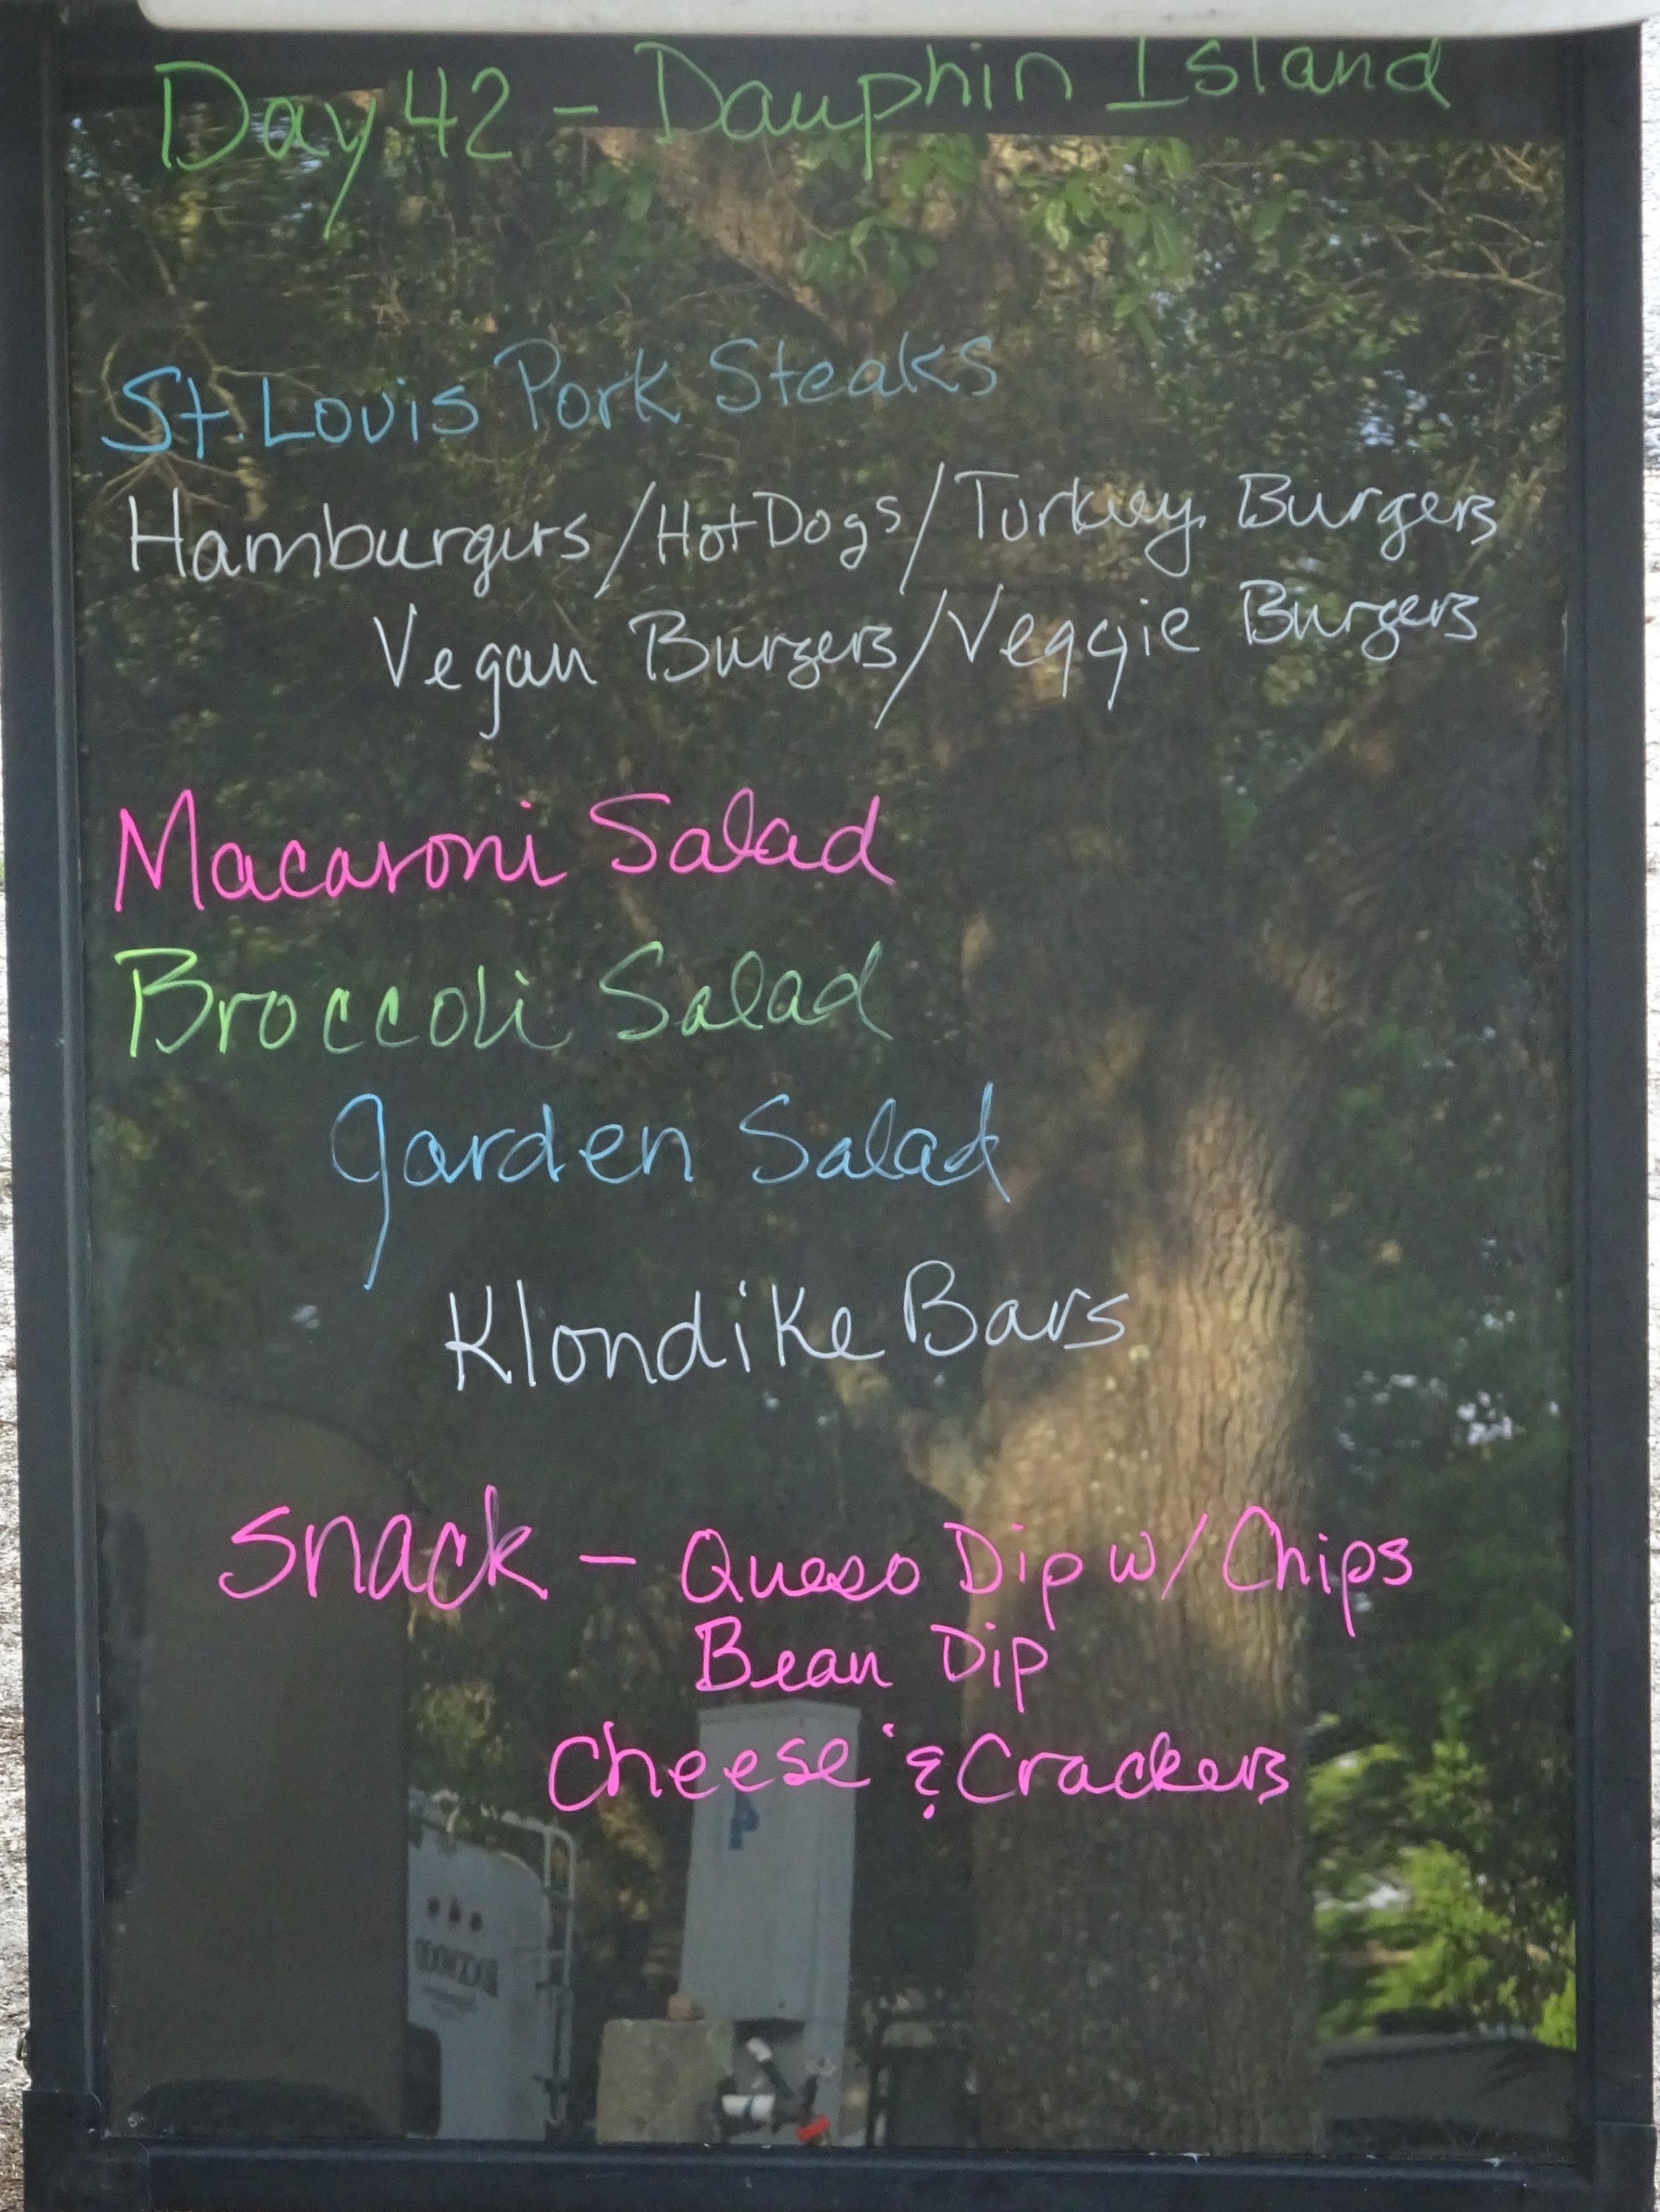 Day 42 - Dauphin Island
St. Louis Pork Steaks
Hamburgers/Hot Dogs/Turkey Burgers
Vegan Burgers/Veggie Burgers
Macaroni Salad
Broccoli Salad
Garden Salad
Klondike Bars
Snack - Queso Dip w/ Chips
Bean Dip
Cheese & Crackers